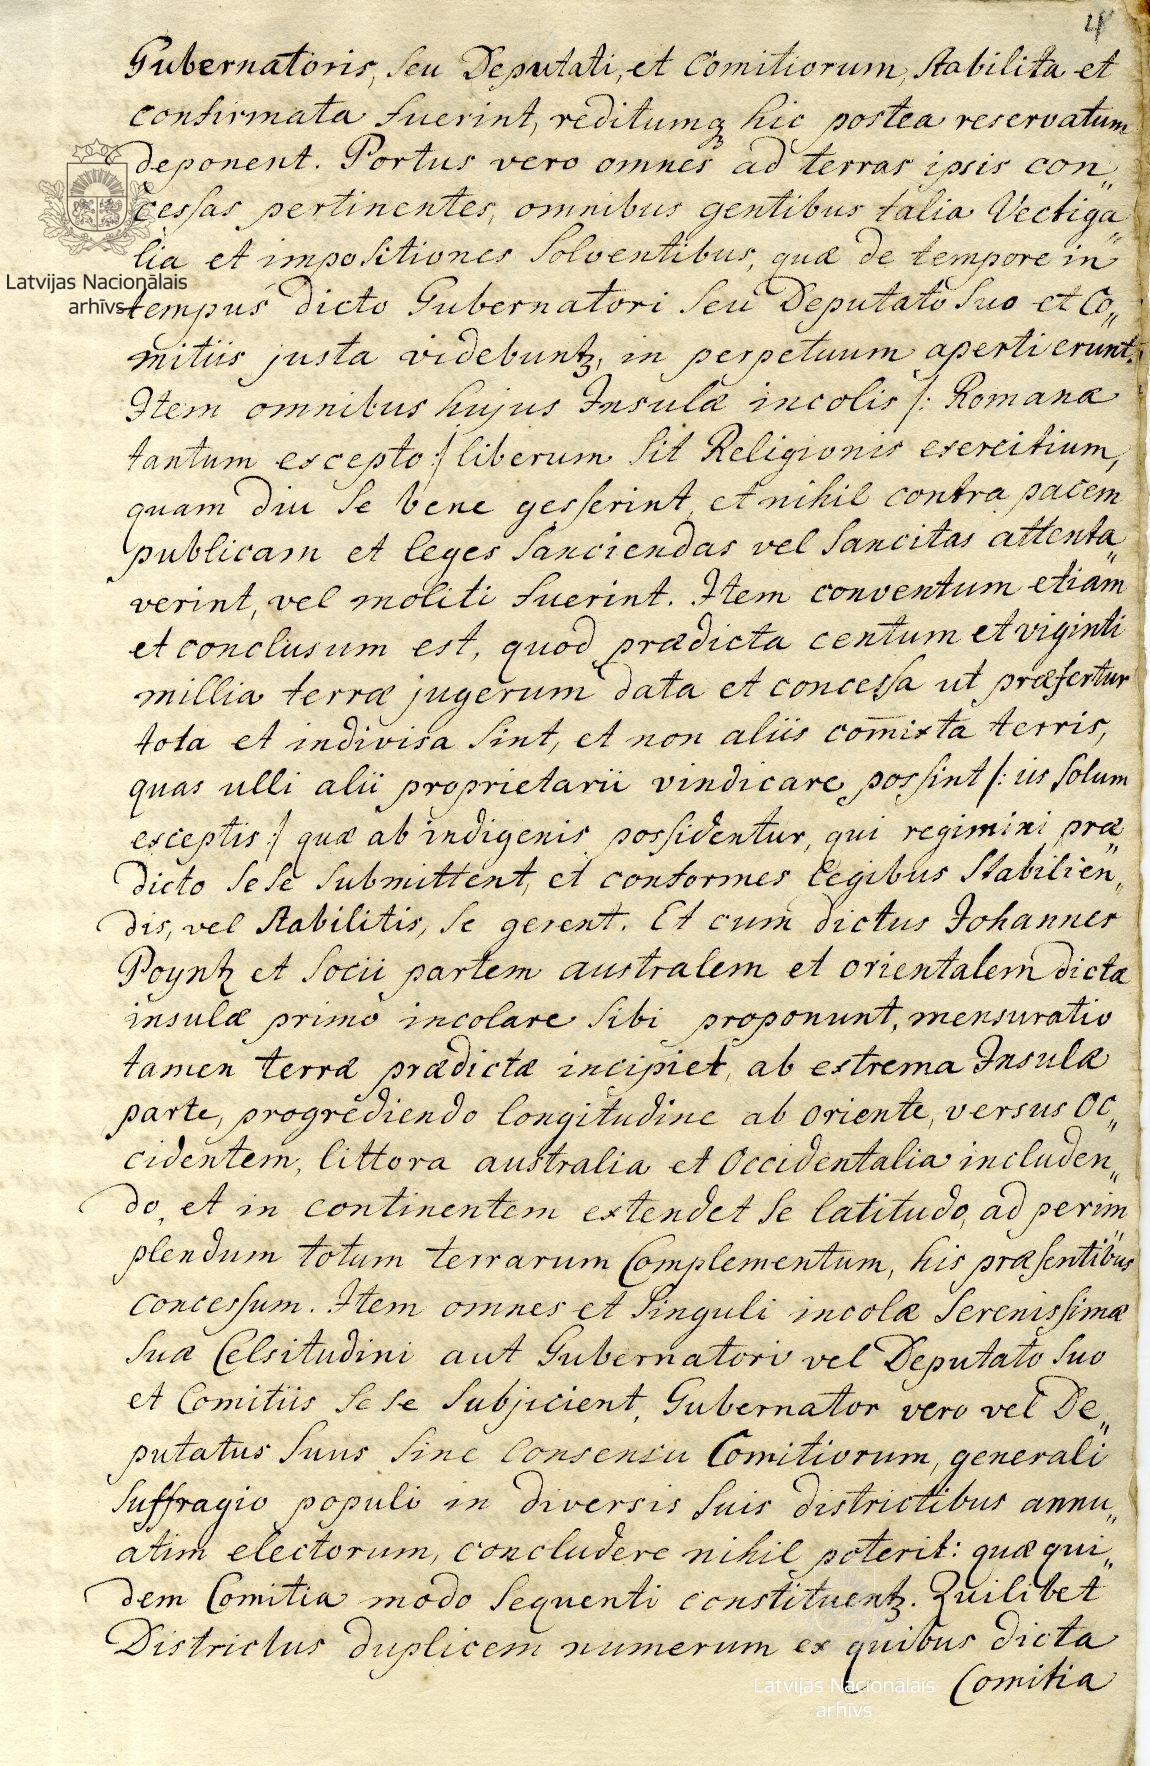 4
Gubernatoris, seu Deputati, et Comitiorum, stabilita et
confirmata fuerint, reditumqꝫ hic postea reservatum
deponent. Portus vero omnes ad terras ipsis con„
cessas pertinentes, omnibus gentibus talia Vectiga„
lia et impositiones solventibus, quæ de tempore in
tempus dicto Gubernatori seu Deputato suo et Co„
mitiis justa videbuntꝫ, in perpetuum aperti erunt.
Item omnibus hujus Insulæ incolis /: Romana
tantum excepto :/ liberum sit Religionis exercitium,
quam diu se bene gesserint, et nihil contra pacem
publicam et leges sanciendas vel sancitas attenta„
verint, vel moliti fuerint. Item conventum etiam
et conclusum est, quod prædicta centum et viginti
millia terræ jugerum data et concessa ut præfertur
tota et indivisa sint, et non aliis com̅ixta terris,
quas ulli alii proprietarii vindicare possint /: iis solum
exceptis :/ quæ ab indigenis possidentur, qui regimini præ„
dicto sese submittent, et conformes legibus stabilien„
dis, vel stabilitis, se gerent. Et cum dictus Johannes
Poyntz et socii partem australem et orientalem dictæ
insulæ primo incolare sibi proponunt, mensuratio
tamen terræ prædictæ incipiet, ab extrema Insulæ
parte, progrediendo longitudine ab oriente, versus Oc„
cidentem, littora australia et Occidentalia includen„
do, et in continentem extendet se latitudo, ad perim„
plendum totum terrarum Complementum, his præsentibus
concessum. Item omnes et singuli incolæ Serenissimæ
Suæ Celsitudini aut Gubernatori vel Deputato suo
et Comitiis sese subjicient, Gubernator vero vel De„
putatus suus sine consensu Comitiorum, generali
suffragio populi in diversis suis districtibus annu„
atim electorum, concludere nihil poterit: quæ qui„
dem Comitia modo sequenti constituentꝫ. Quilibet
Districtus duplicem numerum ex quibus dicta
Comitia
Latvijas Nacionālais
arhīvs
Latvijas Nacionālais
arhīvs